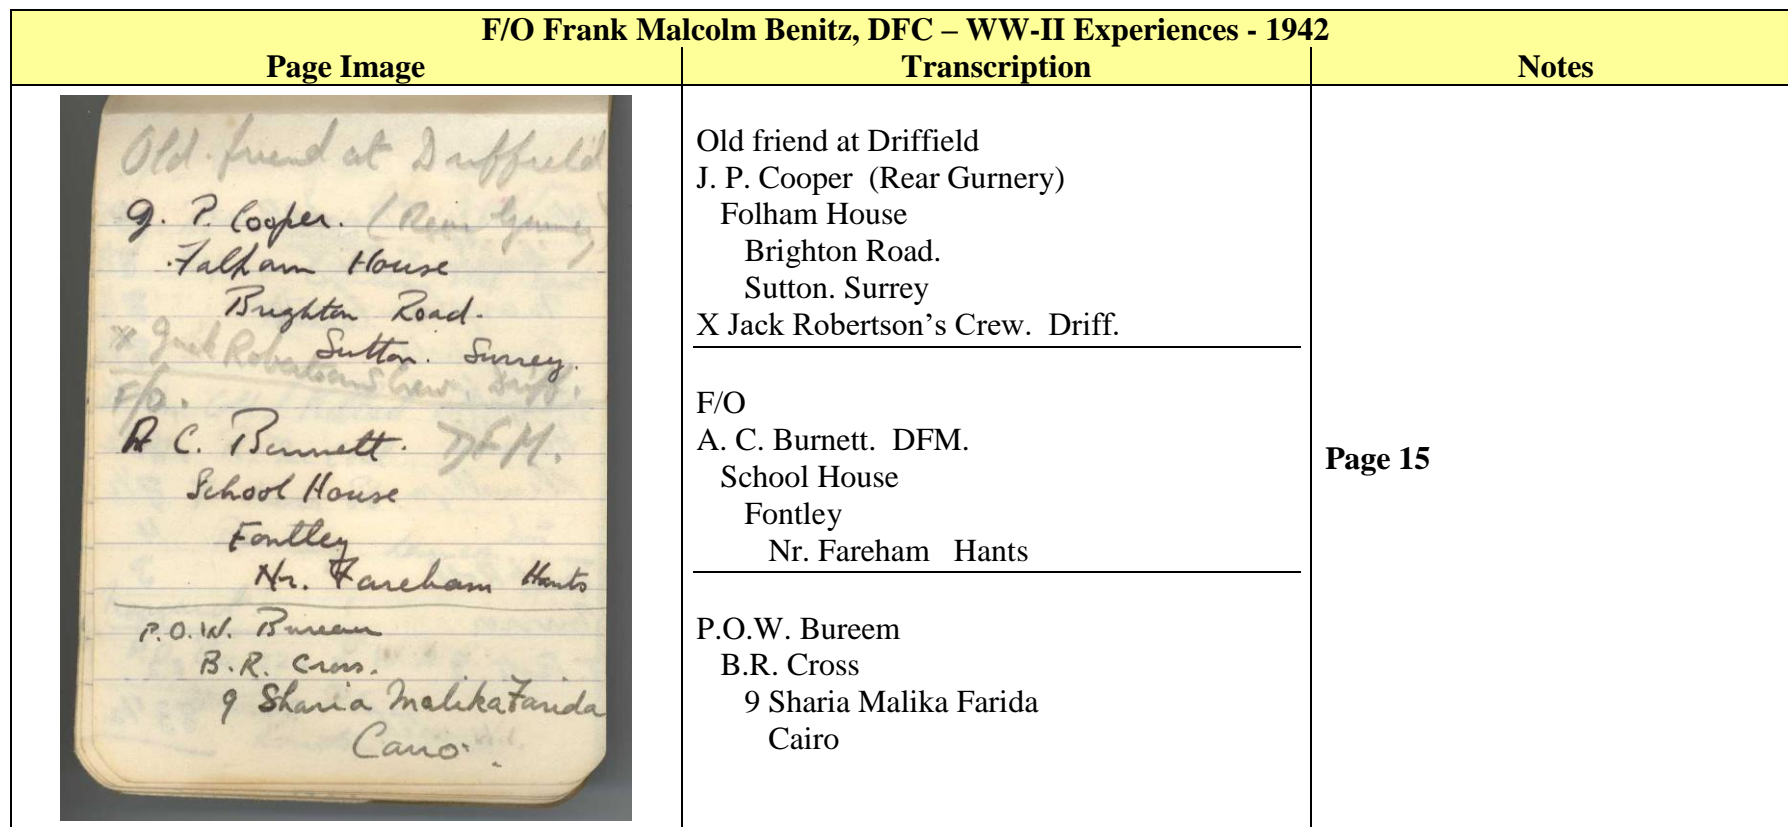 F/O Frank Malcolm Benitz, DFC – WW-II Experiences - 1942
Page Image
Transcription
Notes
Old friend at Driffield
J. P. Cooper. (Rear Gunner)
Falham House
Brighton Road.
Sutton. Surrey.
X Jack Robertson's Crew. Driff.
F/O.
A C. Burnett. DFM.
School House
Fontley
Nr. Fareham Hants
P.O.W. Bureau
B.R. Cross.
9 Sharia Malika Farida
Cairo.
Old friend at Driffield
J. P. Cooper (Rear Gurnery)
Folham House
Brighton Road.
Sutton. Surrey
X Jack Robertson’s Crew. Driff.
F/O
A. C. Burnett. DFM.
School House
Fontley
Nr. Fareham Hants
P.O.W. Bureem
B.R. Cross
9 Sharia Malika Farida
Cairo
Page 15